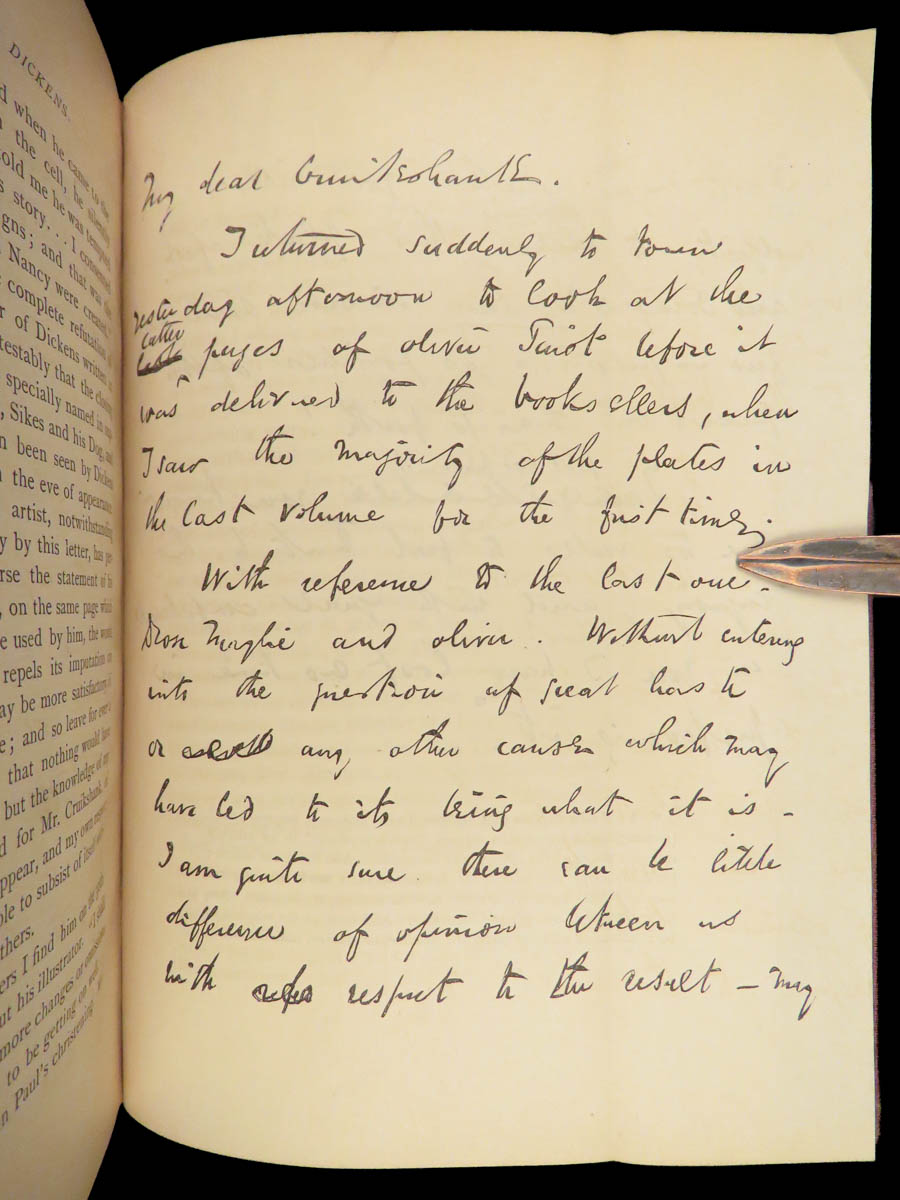 DICKENS.
d when he came to the
n the cell, he silently
told me he was tempted
s story. . . I consented
gns; and that was the
Nancy were created."
complete refutation of
r of Dickens written at
testably that the closing
specially named in one
, Sikes and his Dog, and
n been seen by Dickens
n the eve of appearance
artist, notwithstanding
y by this letter, has per
rse the statement of his
, on the same page which
e used by him, the wrong
repels its imputation on
ay be more satisfactory
e; and so leave for ever a
that nothing would have
but the knowledge of my
d for Mr. Cruikshank of
ppear, and my own regret
ble to subsist of itself
thers.
ers I find him on the
ut his illustrator. "I shall
more changes or omissions
to be getting on well
n Paul's christening
My dear Cruikshank.
I returned suddenly to town
yesterday afternoon to look at the
latter
last pages of Oliver Twist before it
was delivered to the booksellers, when
I saw the majority of the plates in
the last volume for the first time.
With reference to the last one -
Rose Maylie and Oliver. Without entering
into the question of great haste
or any other cause which may
have led to its being what it is -
I am quite sure there can be little
difference of opinion between us
with respect to the result - may